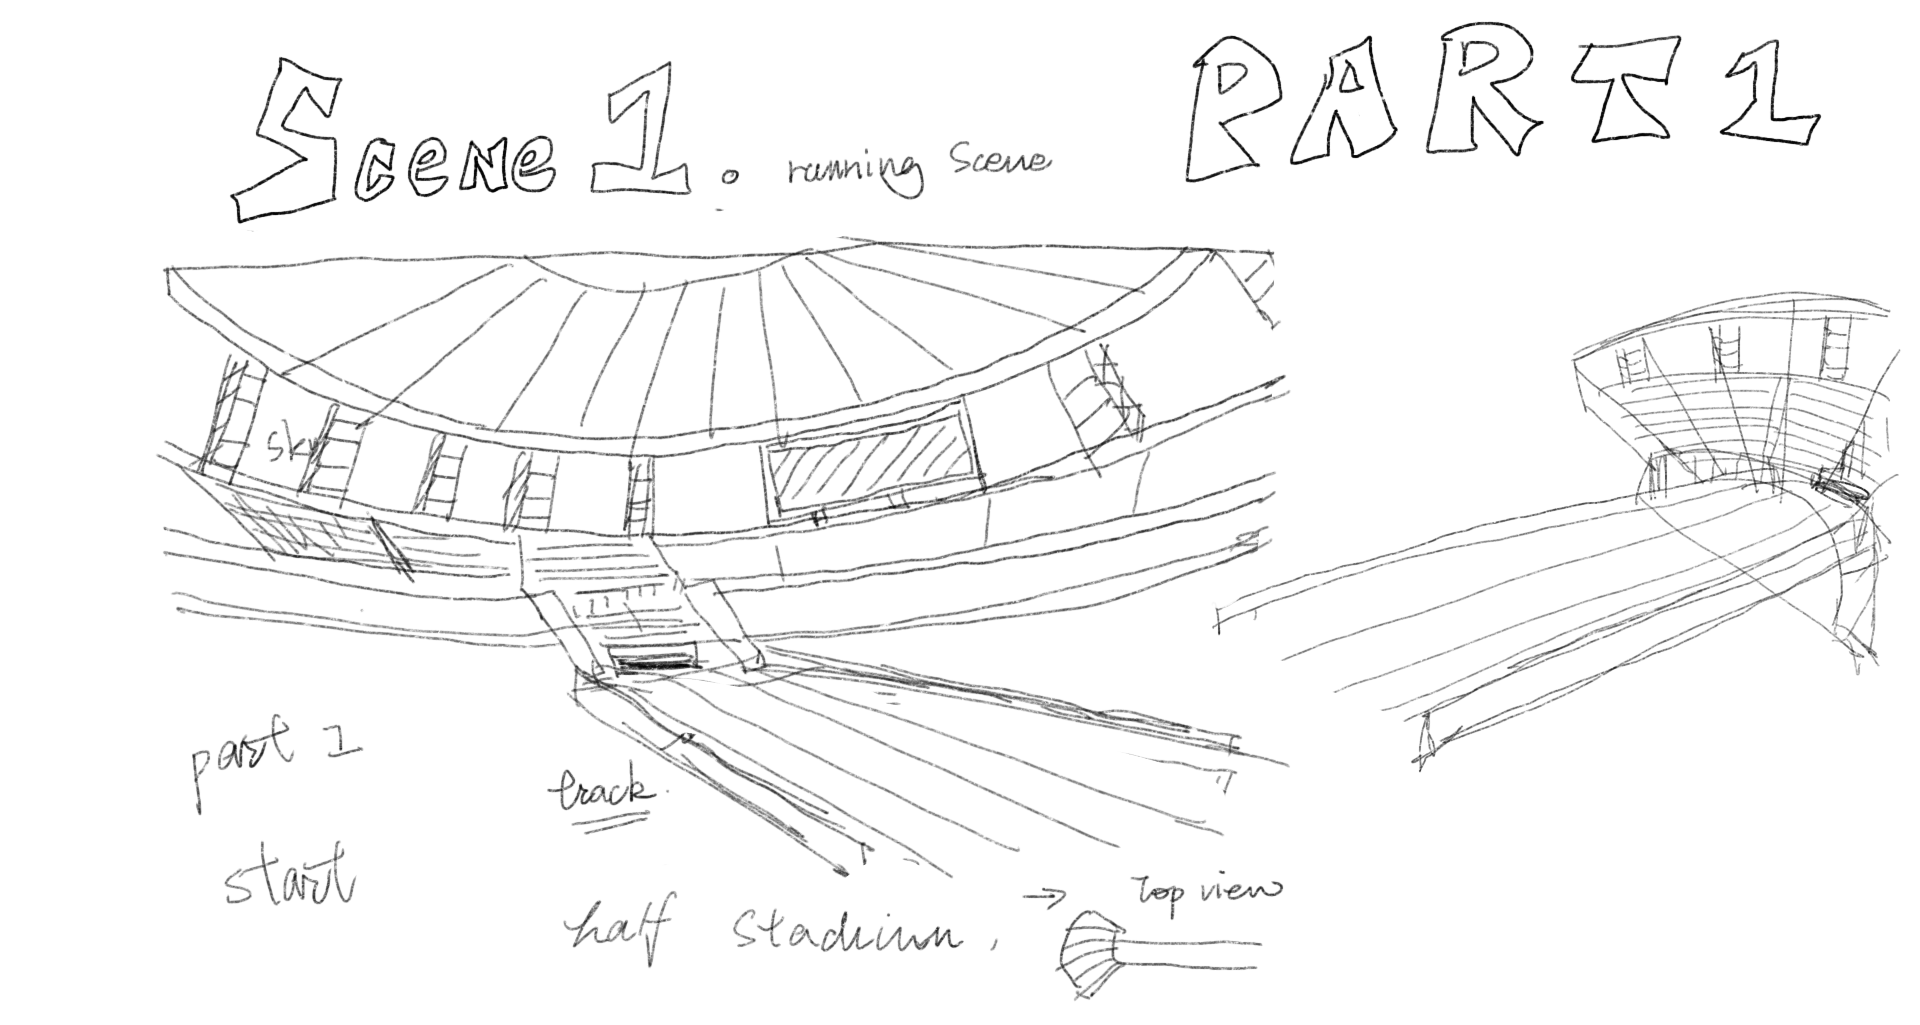 Scene 1. running Scene
PART 1
sky
part 1
start
track.
half stadium,
→ Top view